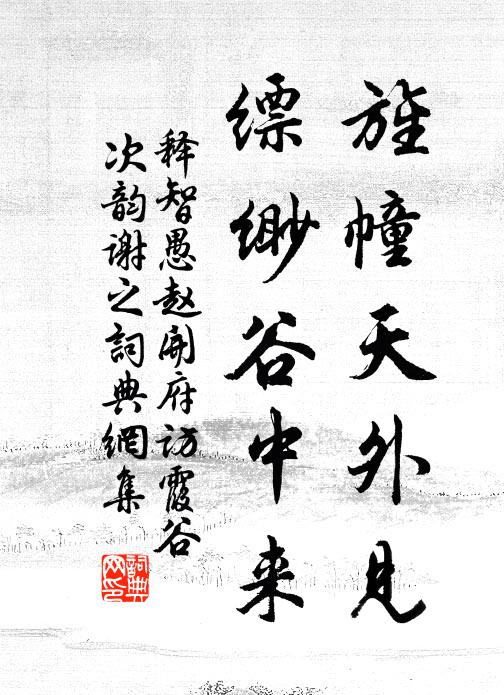 旌幢天外见
缥缈谷中来
释智愚赵开府访霞谷
次韵谢之詞典網集
詞典
网印